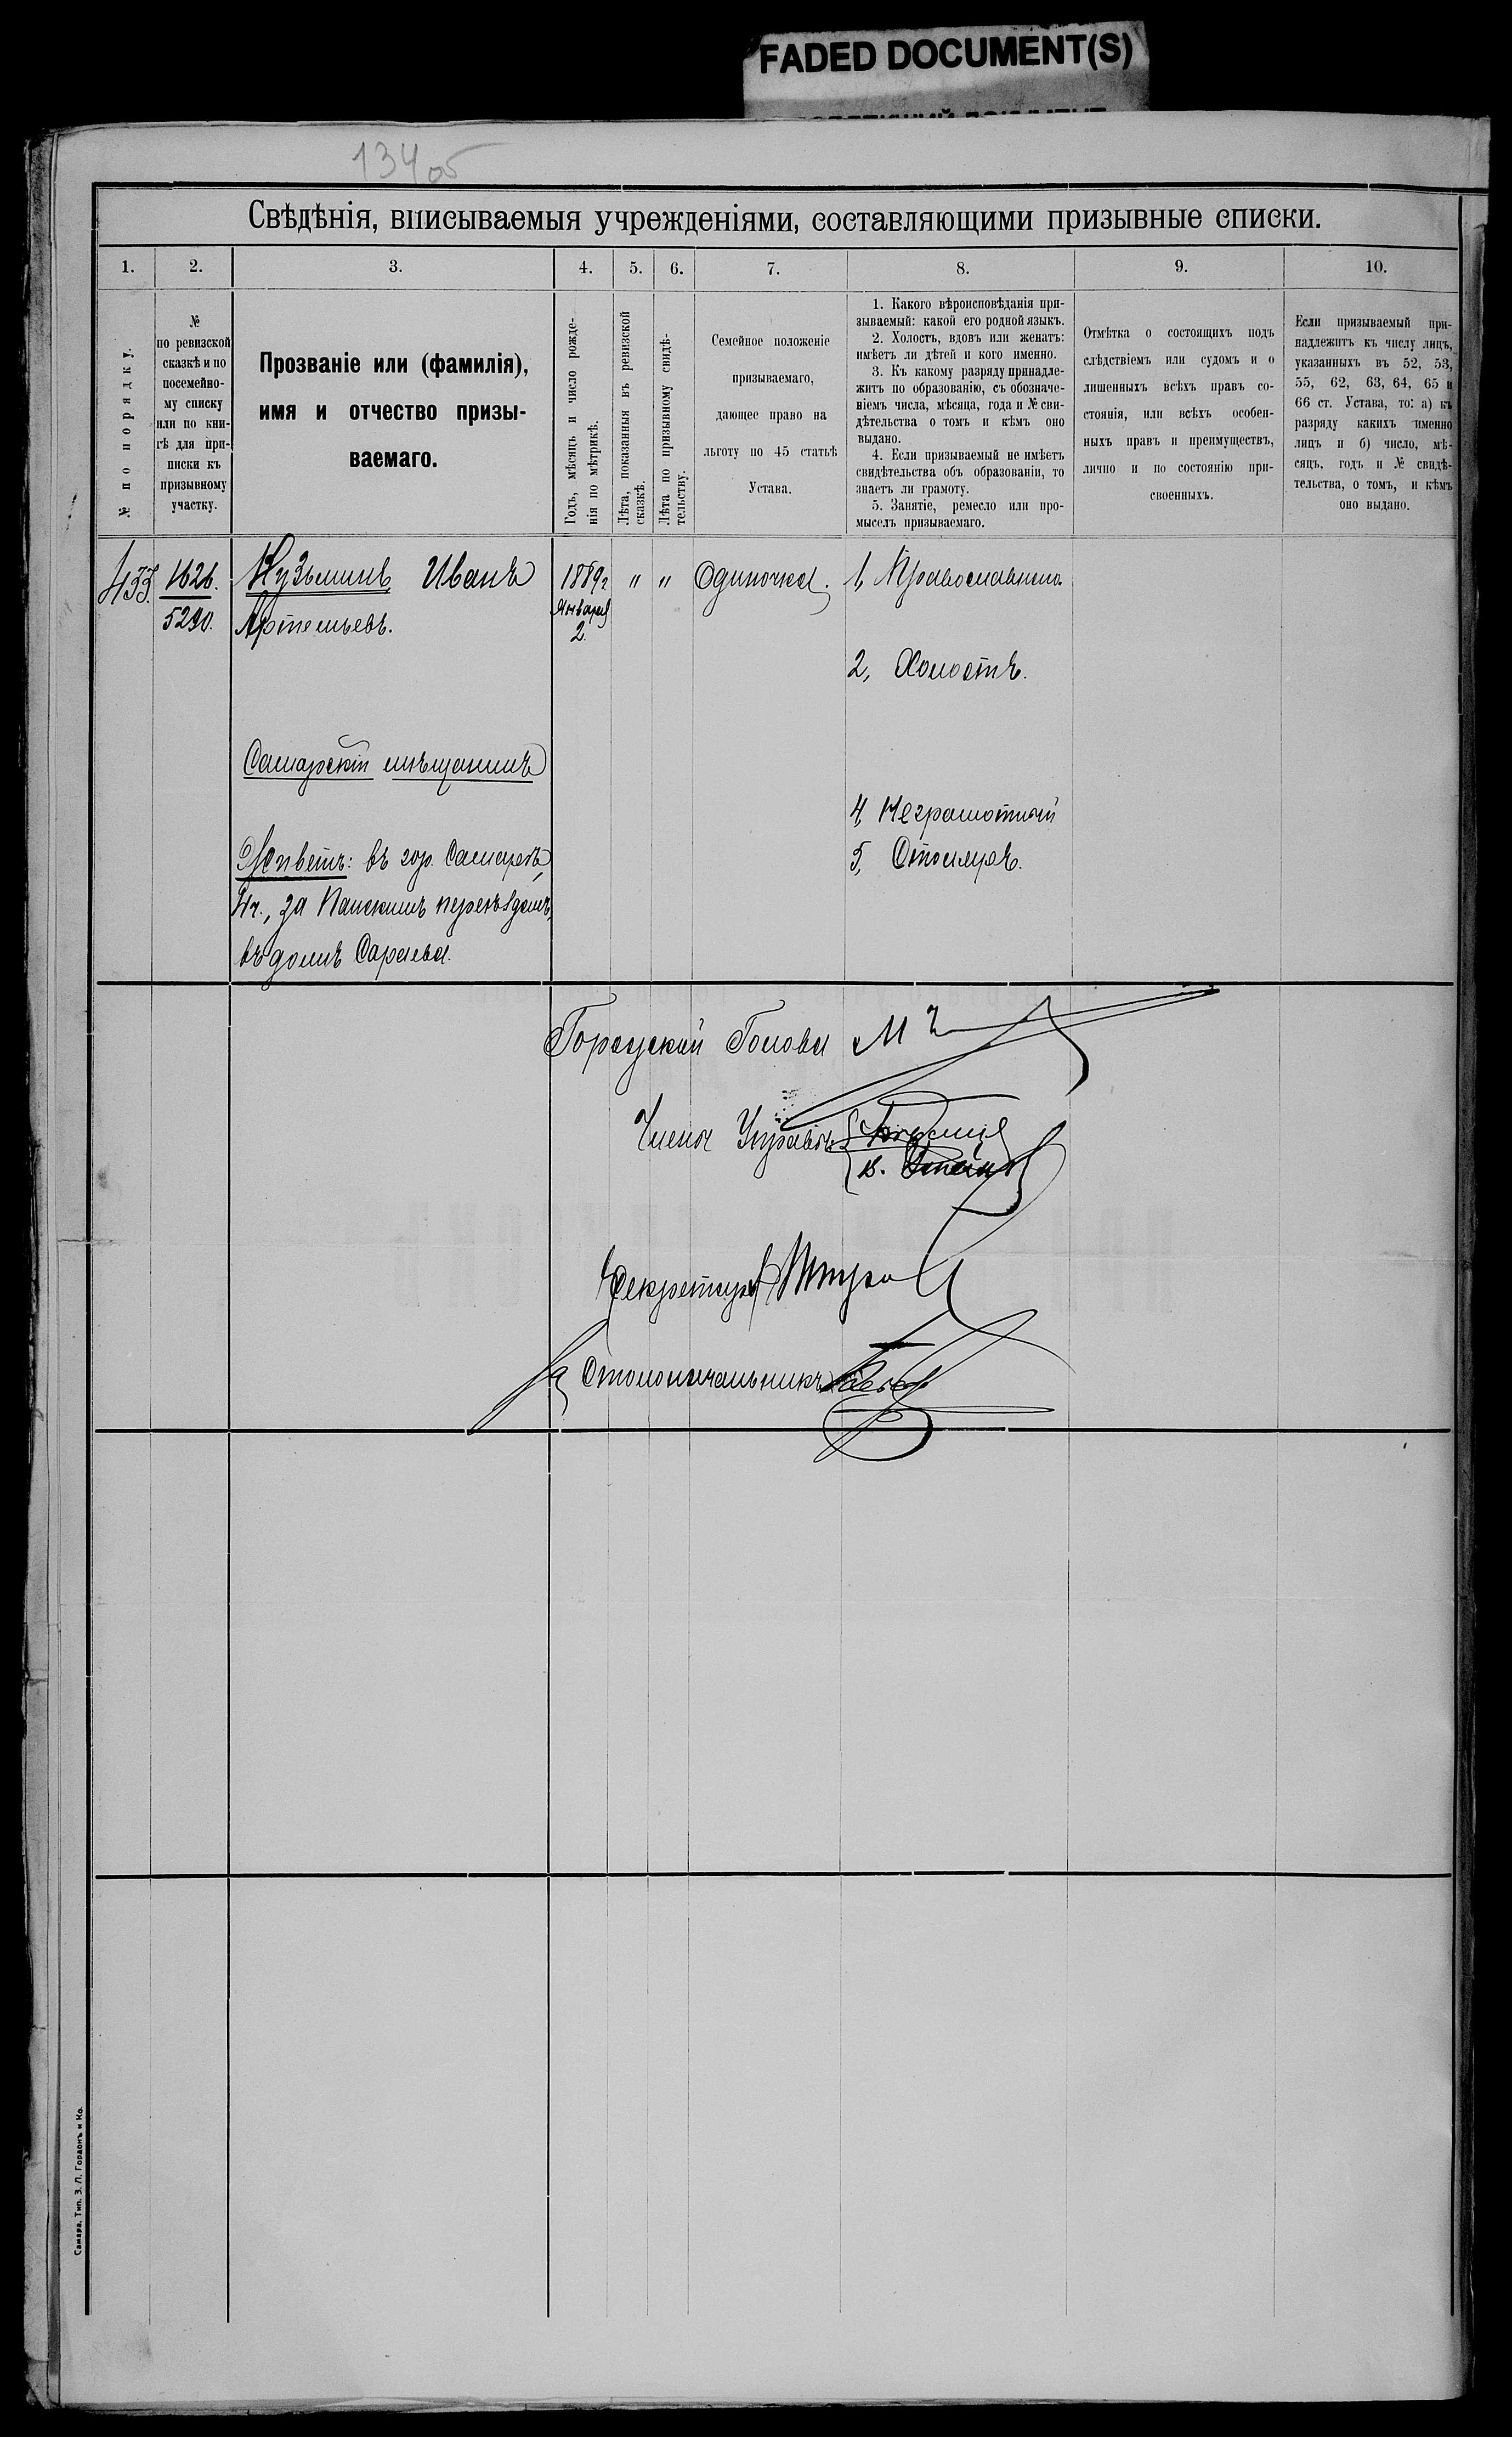 FADED DOCUMENT(S)
134 об
Свѣдѣнія, вписываемыя учрежденіями, составляющими призывные списки.
1.
2.
3.
4.
5.
6.
7.
8.
9.
10.
№ по порядку.
№
по ревизской
сказкѣ и по
посемейно-
му списку
или по кни-
гѣ для при-
писки къ
призывному
участку.
Прозваніе или (фамилія),
имя и отчество призы-
ваемаго.
Годъ, мѣсяцъ и число рожде-
нія по мѣтрикѣ.
Лѣта, показанныя въ ревизской
сказкѣ.
Лѣта по призывному свидѣ-
тельству.
Семейное положеніе
призываемаго,
дающее право на
льготу по 45 статьѣ
Устава.
1. Какого вѣроисповѣданія при-
зываемый: какой его родной языкъ.
2. Холостъ, вдовъ или женатъ:
имѣетъ ли дѣтей и кого именно.
3. Къ какому разряду принадле-
житъ по образованію, съ обозначе-
ніемъ числа, мѣсяца, года и № сви-
дѣтельства о томъ и кѣмъ оно
выдано.
4. Если призываемый не имѣетъ
свидѣтельства объ образованіи, то
знаетъ ли грамоту.
5. Занятіе, ремесло или про-
мыселъ призываемаго.
Отмѣтка о состоящихъ подъ
слѣдствіемъ или судомъ и о
лишенныхъ всѣхъ правъ со-
стоянія, или всѣхъ особен-
ныхъ правъ и преимуществъ,
лично и по состоянію при-
своенныхъ.
Если призываемый при-
надлежитъ къ числу лицъ,
указанныхъ въ 52, 53,
55, 62, 63, 64, 65 и
66 ст. Устава, то: а) къ
разряду какихъ именно
лицъ и б) число, мѣ-
сяцъ, годъ и № свидѣ-
тельства, о томъ, и кѣмъ
оно выдано.
455. 1626. Кузьминъ Иванъ 1889г. " " Одиночка. 1, Православнаго.
5290. Артемьевъ. Января
2.
2, Холостъ.
Самарскій мѣщанинъ
4, Неграмотный
Живетъ: въ гор. Самарѣ, 5, Столяръ.
4ч., за Панскимъ переѣздомъ,
въ домѣ Сараева.
Городской Голова
Члены Управы
Секретарь
За Столоначальникъ
Самара, Тип. З. Л. Гордонъ и Ко.